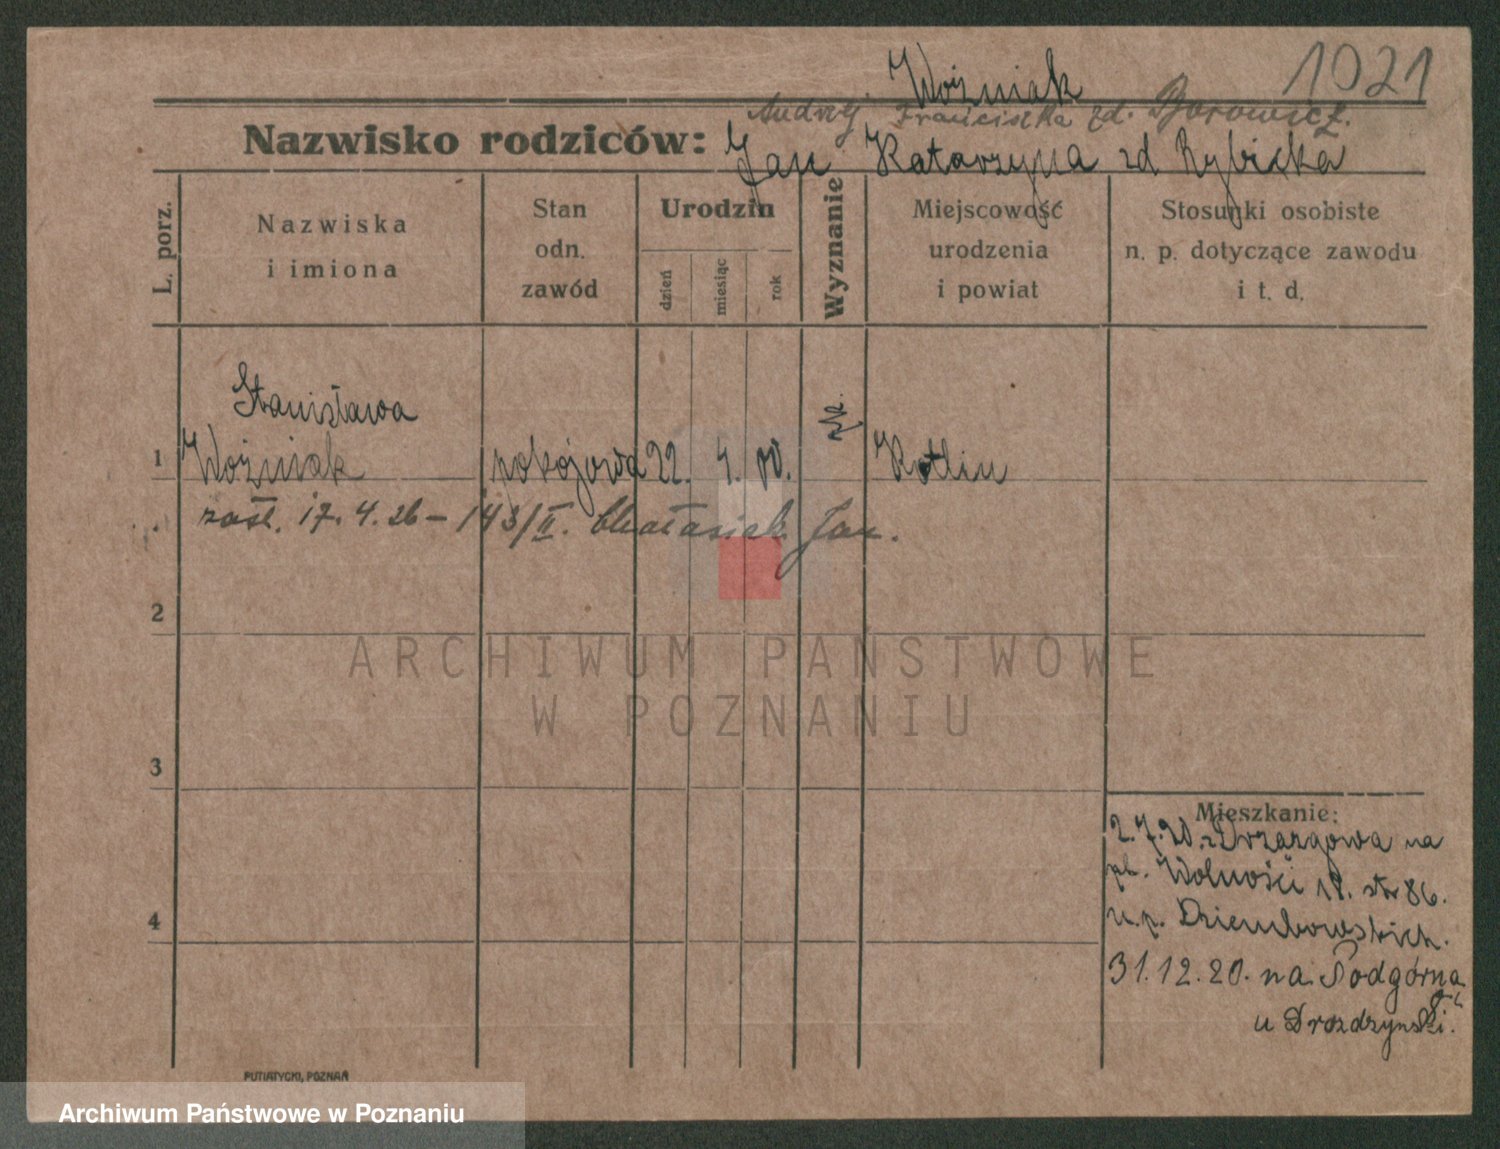 Woźniak
1921
Andrzej Franciszka zd. Borowicz.
Nazwisko rodziców: Jan Katarzyna zd Rybicka
L. porz.
Nazwiska
i imiona
Stan
odn.
zawód
Urodzin
dzień
miesiąc
rok
Wyznanie
Miejscowość
urodzenia
i powiat
Stosunki osobiste
n. p. dotyczące zawodu
i t. d.
Stanisława
1 Woźniak pokojowa 22. 4. 00. Kotlin
zaśl. 17. 4. 26 – 143/II. Jan.
2
ARCHIWUM PAŃSTWOWE
W POZNANIU
3
Mieszkanie:
2.7.20. z Drzazgowa na
pl. Wolności 18. str 86.
u. p. Dziembowskich.
4
31.12.20. na Podgórną
u Drozdzynski.
PUTIATYCKI, POZNAŃ
Archiwum Państwowe w Poznaniu